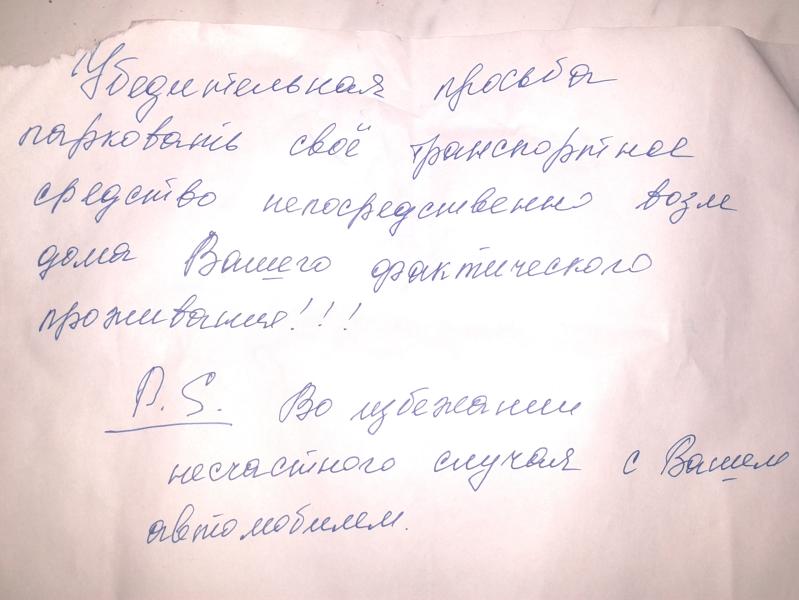 Убедительная просьба
парковать своё транспортное
средство непосредственно возле
дома Вашего фактического
проживания!!!
P.S. Во избежании
несчастного случая с Вашем
автомобилем.